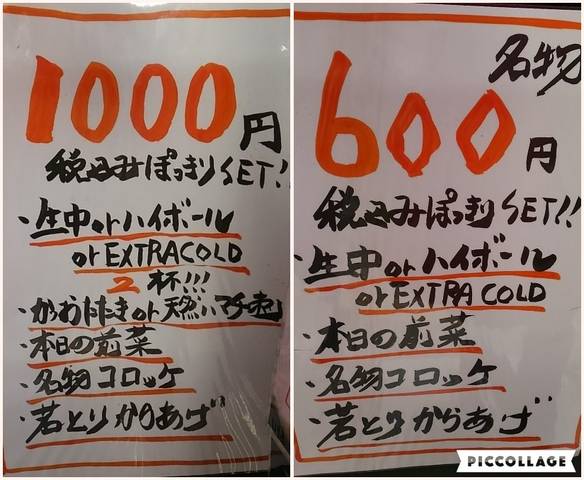 1000円
税込みぽっきりSET!!
・生中orハイボール
orEXTRACOLD
2杯!!!
・かつおたたきor天然ハマチ
・本日の前菜
・名物コロッケ
・若とりからあげ
名物
600円
税込みぽっきりSET!!
・生中orハイボール
orEXTRA COLD
・本日の前菜
・名物コロッケ
・若とりからあげ
PICCOLLAGE